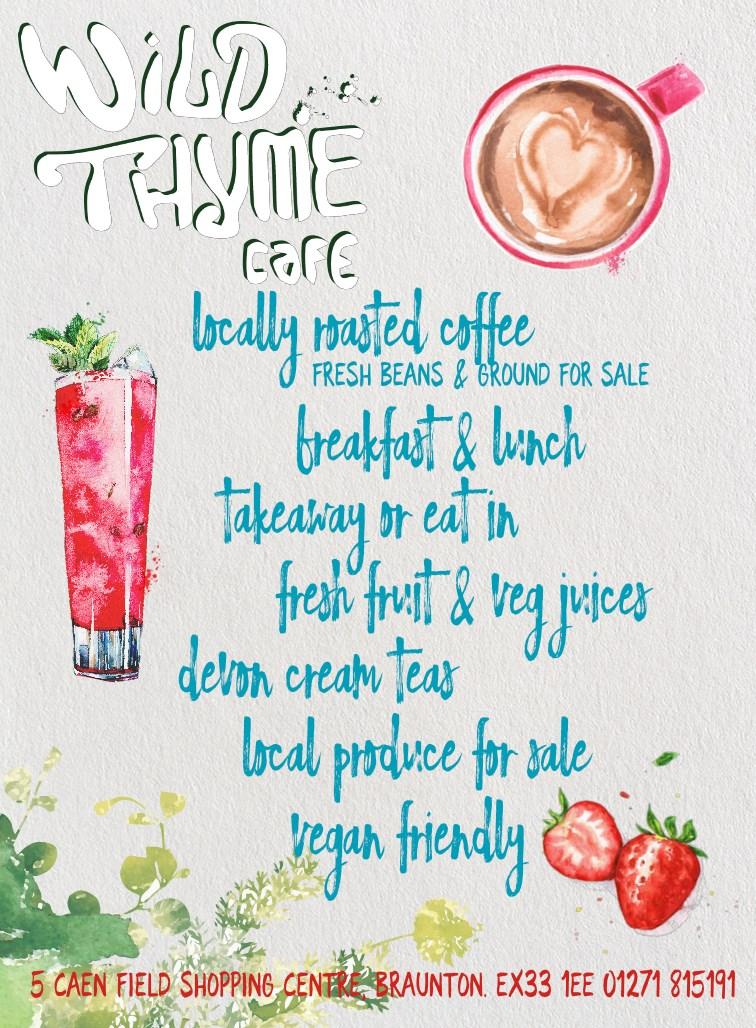 WiLD
THYME
CAFE
locally roasted coffee
FRESH BEANS & GROUND FOR SALE
breakfast & lunch
takeaway or eat in
fresh fruit & veg juices
devon cream teas
local produce for sale
vegan friendly
5 CAEN FIELD SHOPPING CENTRE, BRAUNTON. EX33 1EE 01271 815191